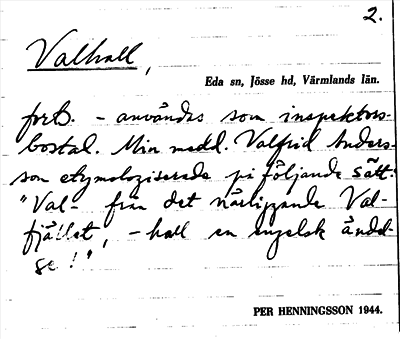 2.
Valhall,
Eda sn, Jösse hd, Värmlands län.
forts. - användes som inspektors-
bostad. Min medd. Valfrid Anders-
son etymologiserade på följande sätt:
"Val- från det närliggande Val-
fjället, - hall en engelsk ändel-
se!"
PER HENNINGSSON 1944.